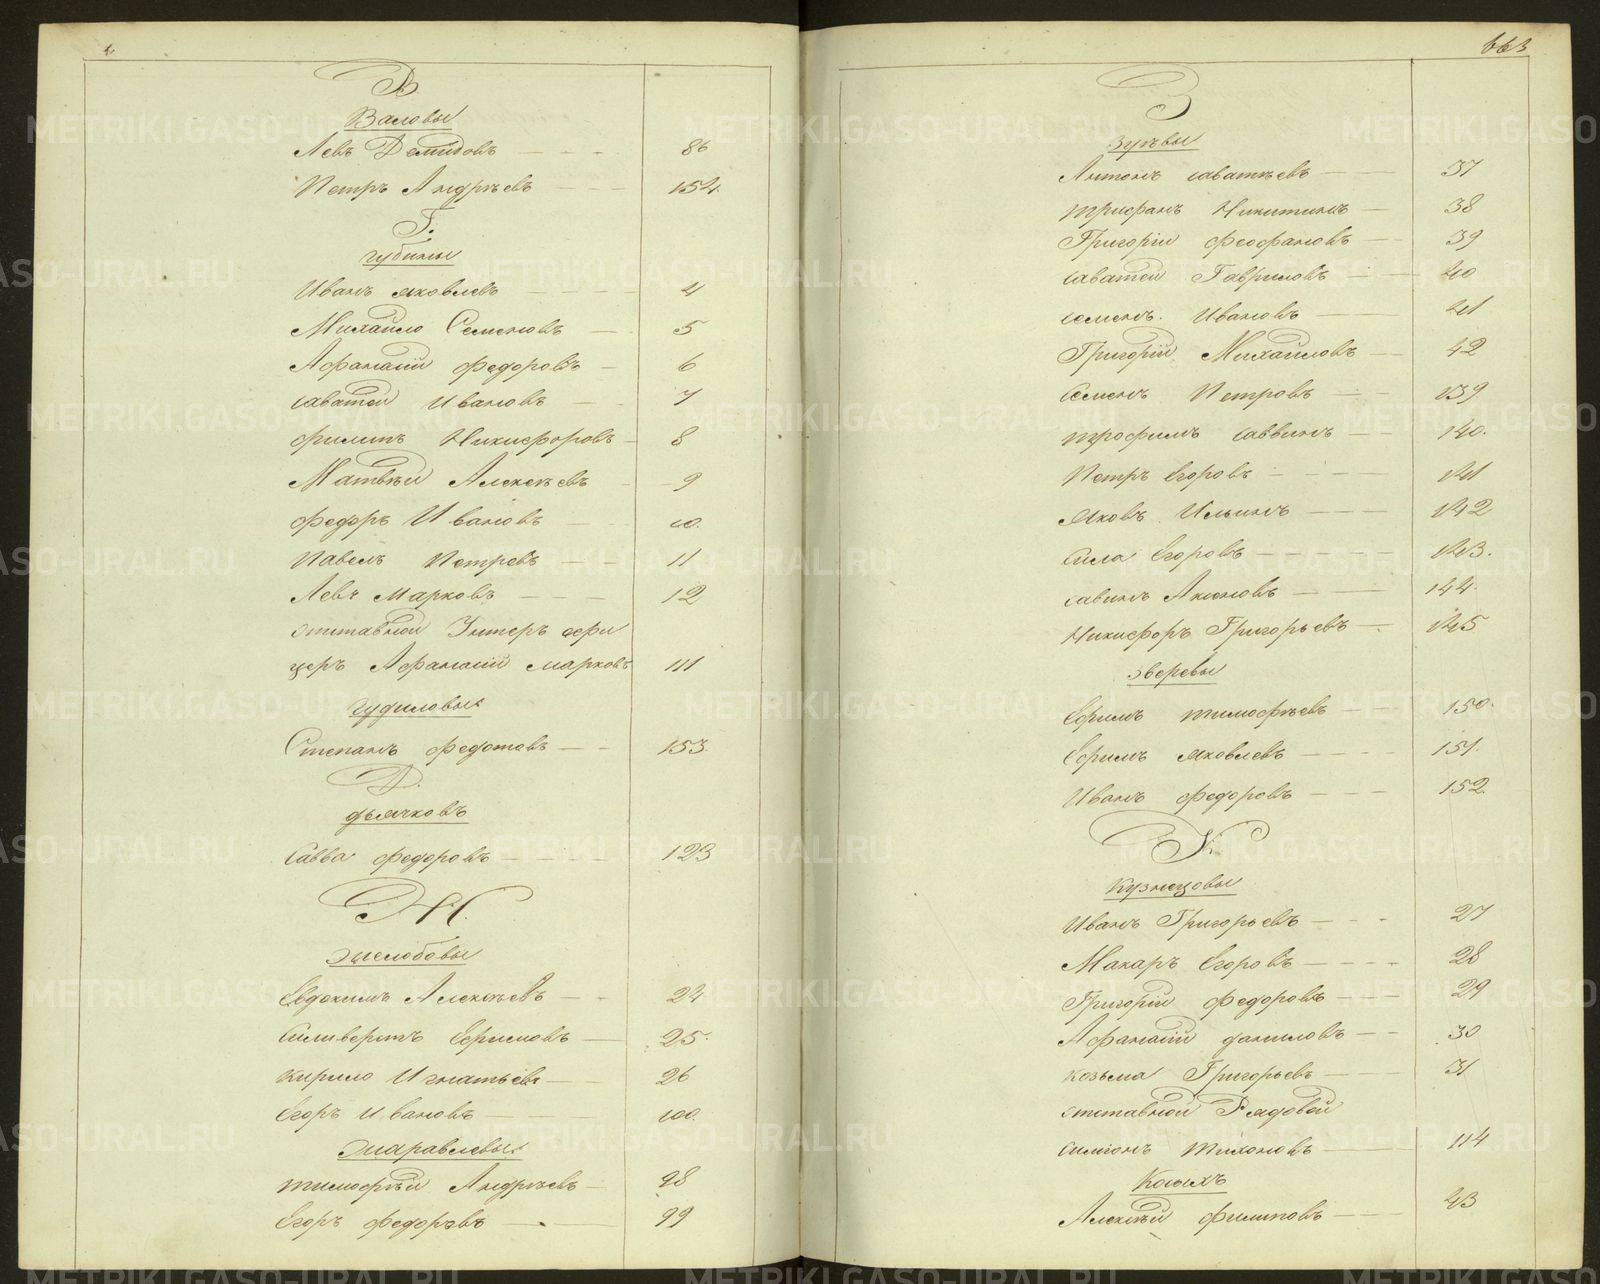 В.
Валовы
Левъ Демидовъ 86
Петръ Андрѣевъ 154.
Г.
Губины
Иванъ Яковлевъ 4
Михайло Семеновъ 5
Афанасий Федоровъ 6
Саватей Ивановъ 7
Филипъ Никифоровъ 8
Матвѣй Алексѣевъ 9
Федоръ Ивановъ 10.
Павелъ Петровъ 11
Левъ Марковъ 12
Отставной Унтеръ офи
церъ Афанасий Марковъ 111
Гудиловы
Степанъ Федотовъ 153.
Д.
Дьячковъ
Савва Федоровъ 123
Ж.
Жолобовы
Евдокимъ Алексѣевъ 24
Силиверстъ Ефимовъ 25.
Кирило Игнатьевъ 26
Егоръ Ивановъ 100.
Жаравлевы
Тимофѣй Андрѣевъ 98
Егоръ Федоровъ 99
663
З
Зуевы
Антонъ Саватѣевъ 37
Трифанъ Никитинъ 38
Григорій Феофановъ 39
Саватей Гавриловъ 40
Семенъ Ивановъ 41
Григорій Михайловъ 42
Семенъ Петровъ 139
Трофимъ Саввинъ 140.
Петръ Егоровъ 141
Яковъ Ильинъ 142
Сила Егоровъ 143.
Савинъ Акимовъ 144.
Никифоръ Григорьевъ 145
Зверевы
Ефимъ Тимофѣевъ 150.
Ефимъ Яковлевъ 151.
Иванъ Федоровъ 152.
К.
Кузнецовы
Иванъ Григорьевъ 27
Макаръ Егоровъ 28
Григорій Федоровъ 29
Афанасий Даниловъ 30
Козьма Григорьевъ 31
Отставной Рядовой
Симионъ Тихоновъ 114
Косыхъ
Алексѣй Филиповъ 43
METRIKI.GASO-URAL.RU